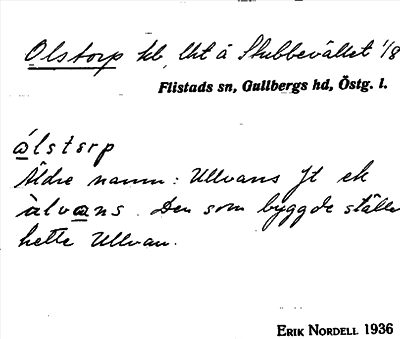 Olstorp hl, lht å Stubbevället 1/8
Flistads sn, Gullbergs hd, Östg. l.
álstorp
Äldre namn: Ullvans
àlvans. Den som byggde ställe
hette Ullvan.
ERIK NORDELL 1936